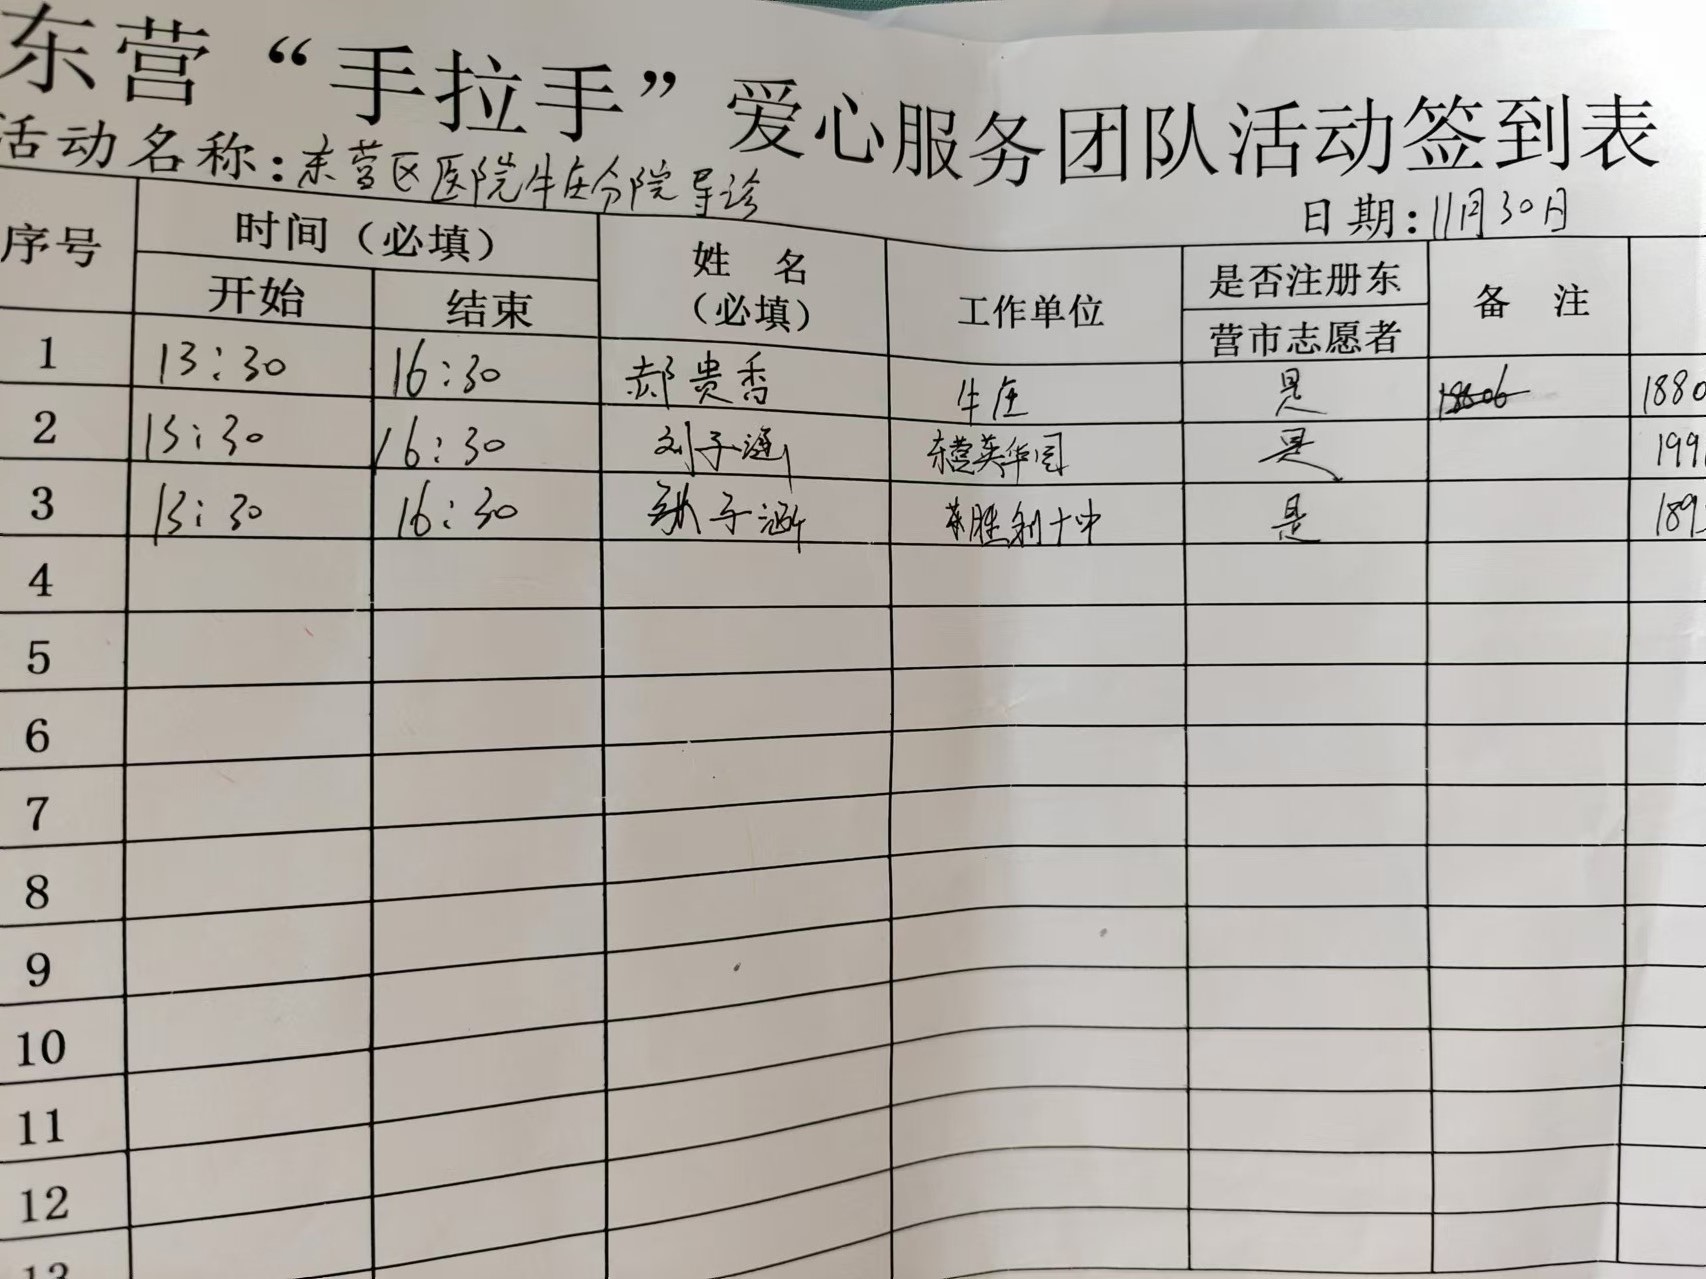 东营“手拉手”爱心服务团队活动签到表
活动名称：东营区医院牛庄分院导诊
日期：11月30日
序号 时间（必填） 姓 名（必填） 工作单位 是否注册东营市志愿者 备 注
开始 结束
1 13:30 16:30 郝贵香 牛庄 是 1880
2 13:30 16:30 刘子涵 东营英华园 是 199
3 13:30 16:30 张子涵 胜利十中 是 189
4
5
6
7
8
9
10
11
12
13